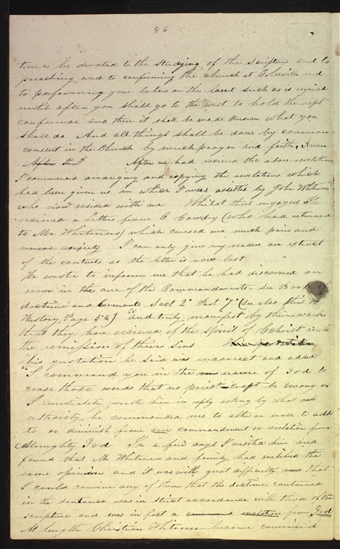 time be devoted to the studying of the scriptures and to
preaching, and to confirming the church at Colesville and
to performing your labors on the land such as is required
until after you shall go to the west to hold the next
conference and then it shall be made known what you
shall do And all things shall be done by common
consent in the Church by much prayer and faith; Amen
After we had received the above revelations
I commenced arranging and copying the revelations which
had been given us in which I was assisted by John Whitmer
who now resided with me Whilst thus engaged I
received a letter from O Cowdry (who had returned
to Mr Whitmers) which caused me much pain and
I can only give my readers an extract
of the contents as the letter is now lost
He wrote to inform me that he had discovered an
error in one of the Commandments, in Book of
doctrine and Covenants Sect 2d Par 7th (see also this
History Page ) "And truly manifest by their works
that they have received of the Spirit of Christ unto
the remission of their sins
This quotation he said was incorrect and added
I command you in the name of God to
erase those words that no priestcraft be among us
I immediately wrote him in reply asking by what
authority he commanded me to alter nor to add
to or diminish from commandment or revelation from
Almighty God In a few days I visited him and
found that Mr Whitmer and family had imbibed the
same opinion and it was with great difficulty that
I could convince any of them that the doctrine contained
in the sentence was in strict accordance with that of the
scripture and was in fact a from God
At length Christian Whitmer became convinced